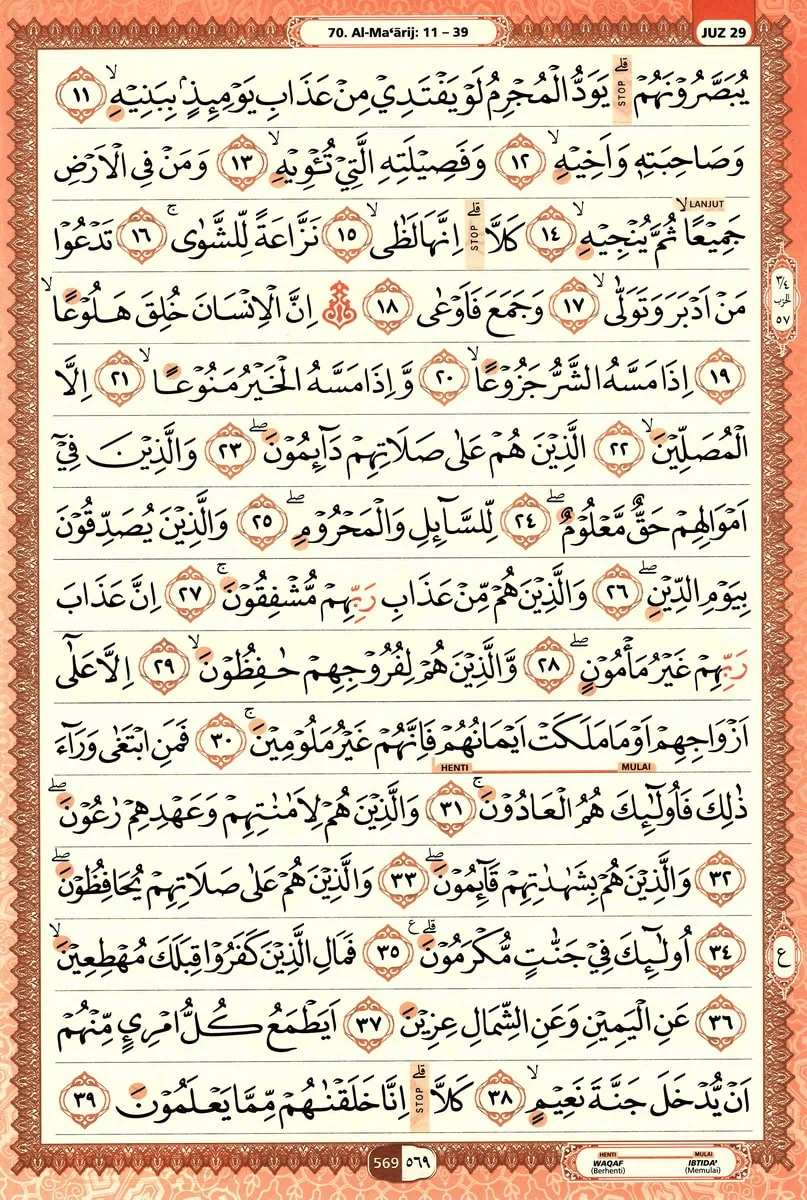 70. Al-Ma‘ārij: 11 – 39
JUZ 29
يُبَصَّرُوْنَهُمْۗ STOP يَوَدُّ الْمُجْرِمُ لَوْ يَفْتَدِيْ مِنْ عَذَابِ يَوْمِىِٕذٍۢ بِبَنِيْهِۙ ١١
وَصَاحِبَتِهٖ وَاَخِيْهِۙ ١٢ وَفَصِيْلَتِهِ الَّتِيْ تُـْٔوِيْهِۙ ١٣ وَمَنْ فِى الْاَرْضِ
LANJUT
جَمِيْعًاۙ ثُمَّ يُنْجِيْهِۙ ١٤ كَلَّاۗ STOP اِنَّهَا لَظٰىۙ ١٥ نَزَّاعَةً لِّلشَّوٰىۚ ١٦ تَدْعُوْا
مَنْ اَدْبَرَ وَتَوَلّٰىۙ ١٧ وَجَمَعَ فَاَوْعٰى ١٨ ۞ اِنَّ الْاِنْسَانَ خُلِقَ هَلُوْعًاۙ
١٩ اِذَا مَسَّهُ الشَّرُّ جَزُوْعًاۙ ٢٠ وَّاِذَا مَسَّهُ الْخَيْرُ مَنُوْعًاۙ ٢١ اِلَّا
الْمُصَلِّيْنَۙ ٢٢ الَّذِيْنَ هُمْ عَلٰى صَلَاتِهِمْ دَاۤىِٕمُوْنَۖ ٢٣ وَالَّذِيْنَ فِيْٓ
اَمْوَالِهِمْ حَقٌّ مَّعْلُوْمٌۖ ٢٤ لِّلسَّاۤىِٕلِ وَالْمَحْرُوْمِۖ ٢٥ وَالَّذِيْنَ يُصَدِّقُوْنَ
بِيَوْمِ الدِّيْنِۖ ٢٦ وَالَّذِيْنَ هُمْ مِّنْ عَذَابِ رَبِّهِمْ مُّشْفِقُوْنَۚ ٢٧ اِنَّ عَذَابَ
رَبِّهِمْ غَيْرُ مَأْمُوْنٍۖ ٢٨ وَّالَّذِيْنَ هُمْ لِفُرُوْجِهِمْ حٰفِظُوْنَۙ ٢٩ اِلَّا عَلٰٓى
اَزْوَاجِهِمْ اَوْ مَا مَلَكَتْ اَيْمَانُهُمْ فَاِنَّهُمْ غَيْرُ مَلُوْمِيْنَۚ ٣٠ فَمَنِ ابْتَغٰى وَرَاۤءَ
MULAI HENTI
ذٰلِكَ فَاُولٰۤىِٕكَ هُمُ الْعَادُوْنَۚ ٣١ وَالَّذِيْنَ هُمْ لِاَمٰنٰتِهِمْ وَعَهْدِهِمْ رٰعُوْنَۖ
٣٢ وَالَّذِيْنَ هُمْ بِشَهٰدٰتِهِمْ قَاۤىِٕمُوْنَۖ ٣٣ وَالَّذِيْنَ هُمْ عَلٰى صَلَاتِهِمْ يُحَافِظُوْنَۖ
٣٤ اُولٰۤىِٕكَ فِيْ جَنّٰتٍ مُّكْرَمُوْنَۗ ࣖ ٣٥ فَمَالِ الَّذِيْنَ كَفَرُوْا قِبَلَكَ مُهْطِعِيْنَۙ
٣٦ عَنِ الْيَمِيْنِ وَعَنِ الشِّمَالِ عِزِيْنَ ٣٧ اَيَطْمَعُ كُلُّ امْرِئٍ مِّنْهُمْ
اَنْ يُّدْخَلَ جَنَّةَ نَعِيْمٍۙ ٣٨ كَلَّاۗ STOP اِنَّا خَلَقْنٰهُمْ مِّمَّا يَعْلَمُوْنَ ٣٩
٣/٤
الحزب
٥٧
ع
569 ٥٦٩
HENTI MULAI
WAQAF IBTIDA'
(Berhenti) (Memulai)